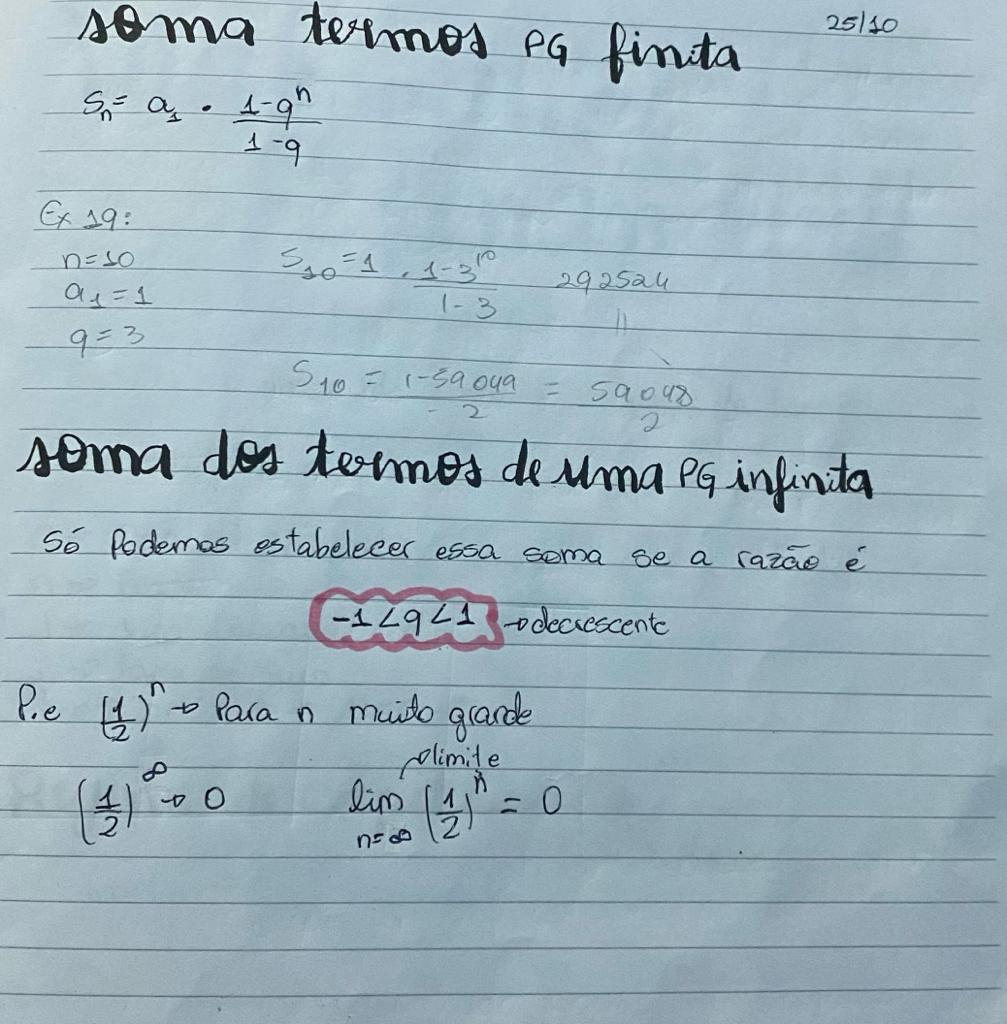 soma termos PG finita 25/10
Sn = a1 · (1-q^n)/(1-q)
Ex 19:
n=10
a1=1
q=3
S10 = 1 . (1-3^10)/(1-3) 292524
||
S10 = (1-59049)/(-2) = 59048/2
soma dos termos de uma PG infinita
Só Podemos estabelecer essa soma se a razão é
-1<q<1 → decrescente
P.e (1/2)^n → Para n muito grande
→ limite
(1/2)^∞ → 0 lim n=∞ (1/2)^n = 0